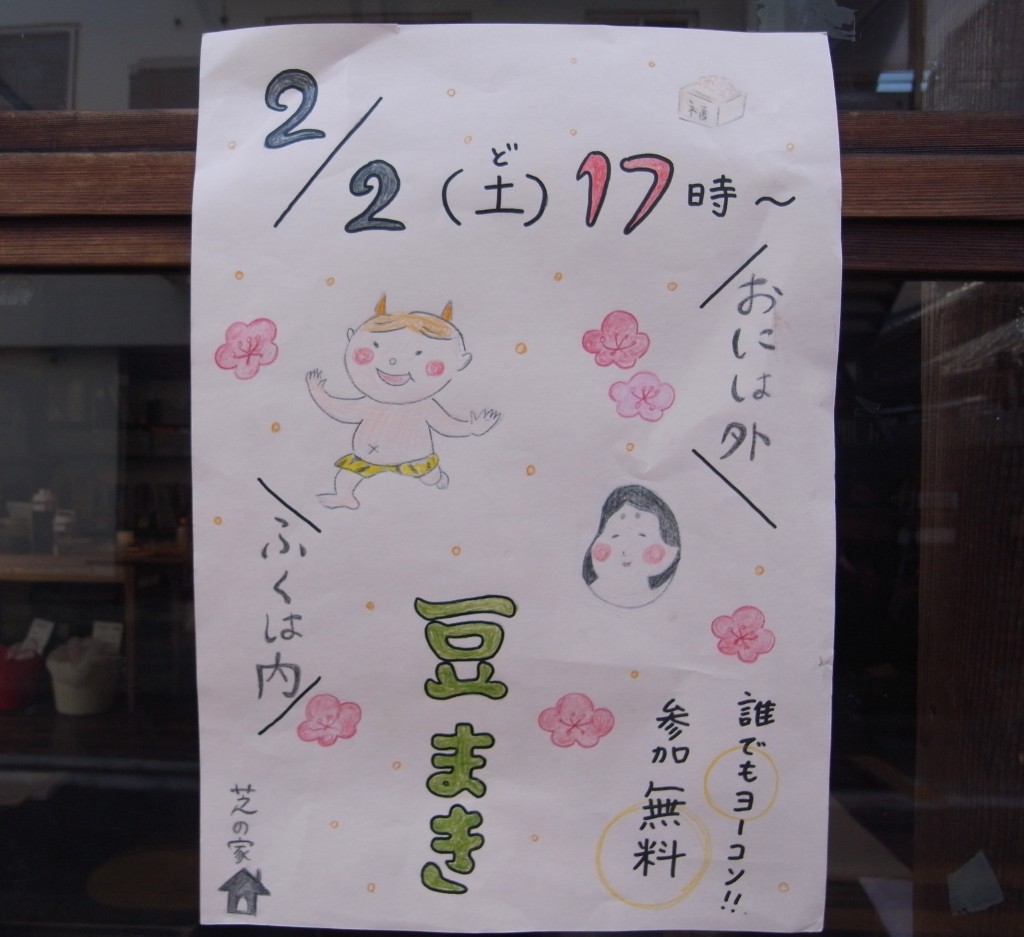 2/2(土)17時〜
ど
福
おには外
ふくは内
豆まき
誰でもヨーコソ!!
参加無料
芝の家